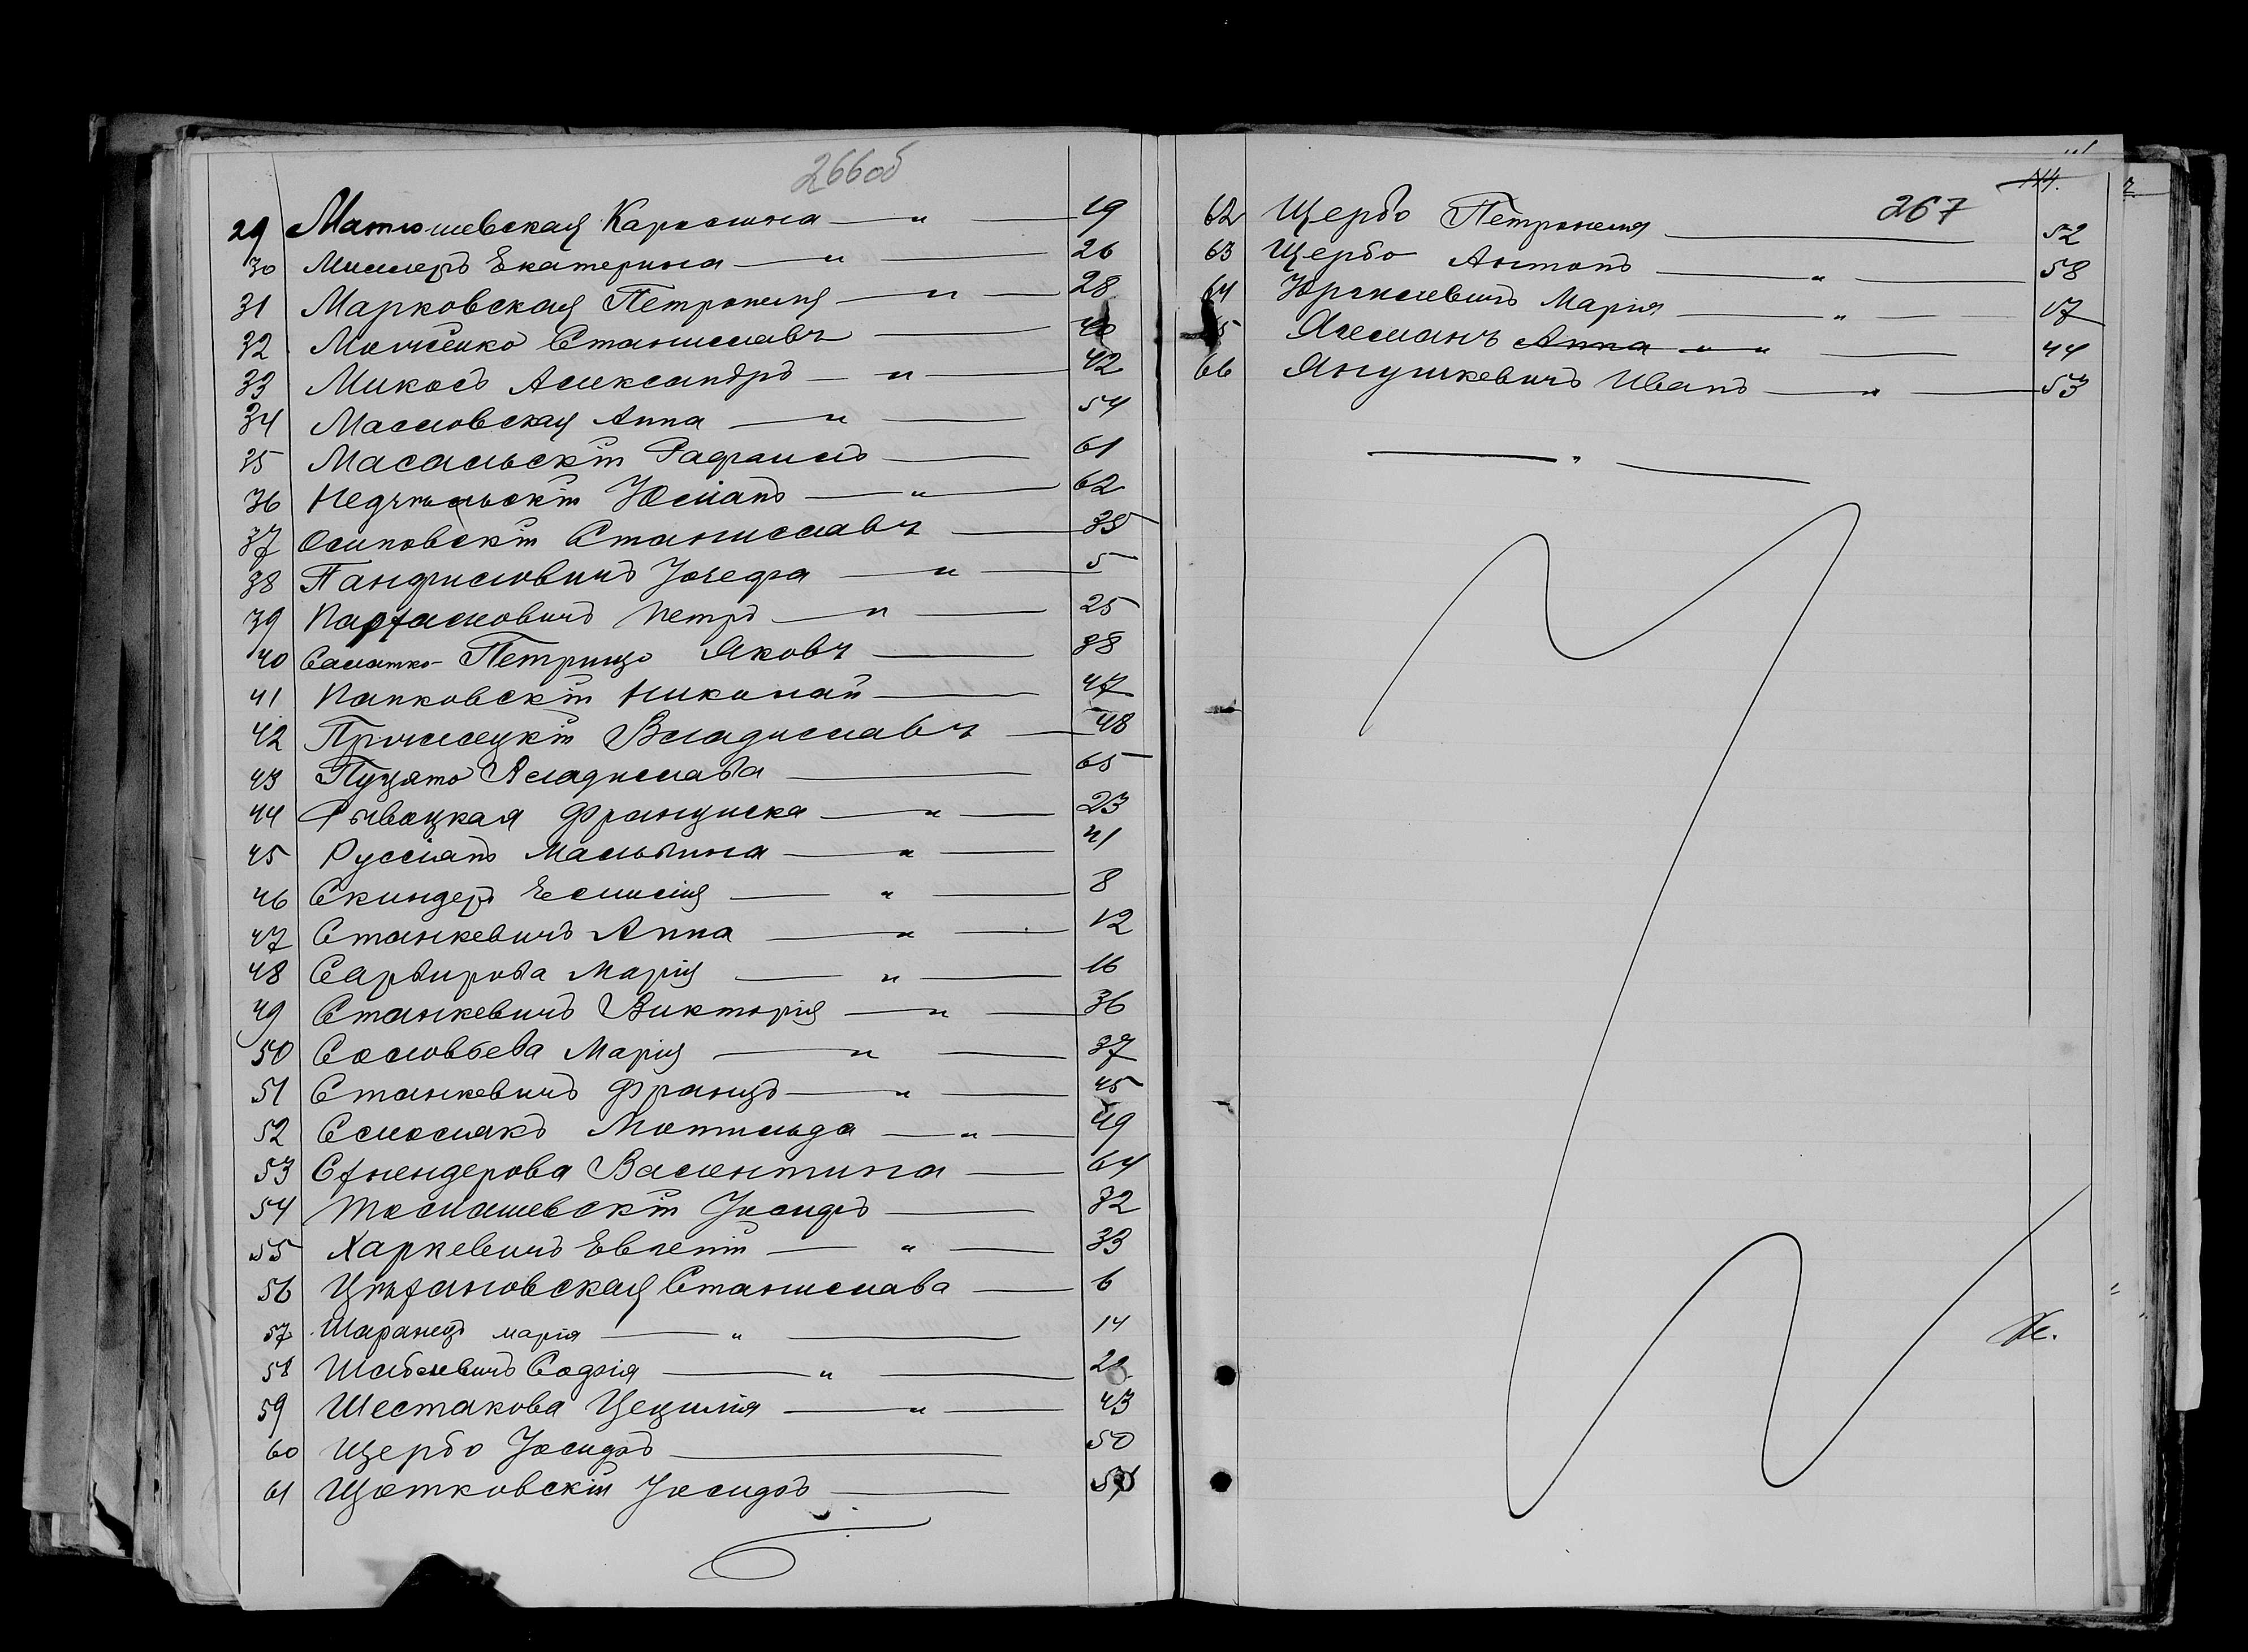 266об
29 Матюшевская Каролина — " — 19
30 Миллеръ Екатерина — " — 26
31 Марковская Петронеля — " — 28
32 Станиславъ — 40
33 Микосъ Александръ — " — 42
34 Масловская Анна — " — 54
35 Масальскій — 61
36 Недзвѣльскій Юліанъ — " — 62
37 Осиповскій Станиславъ — 35
38 Панфиловичъ Іозефа — " — 5
39 Петръ — " — 25
40 Саматко-Петрицо Яковъ — 38
41 Папковскій Николай — 47
42 Владиславъ — 48
43 Пуцято Владислава — 65
44 Рывоцкая Франциска — " — 23
45 Руссіанъ Мальвина — " — 41
46 Скиндеръ Емилія — " — 8
47 Станкевичъ Анна — " — 12
48 Сарвирова Марія — " — 16
49 Станкевичъ Викторія — " — 36
50 Соловьева Марія — " — 37
51 Станкевичъ Францъ — " — 45
52 Смолякъ Мотильда — " — 49
53 Валентина — 64
54 Томашевскій Іосифъ — 32
55 Харкевичъ Евгеній — " — 33
56 Станислава — 6
57 Шаранецъ Марія — " — 14
58 Шаблевичъ Софія — " —
59 Шестакова Цецилія — " — 43
60 Щербо Іосифъ — 50
61 Щотковскій Іосифъ —
267
62 Щербо Петронеля — 52
63 Щербо Антонъ — " — 58
64 Юргилевичъ Марія — " — 17
65 Ягеманъ Анна " " — 44
66 Янушкевичъ Иванъ — " — 53